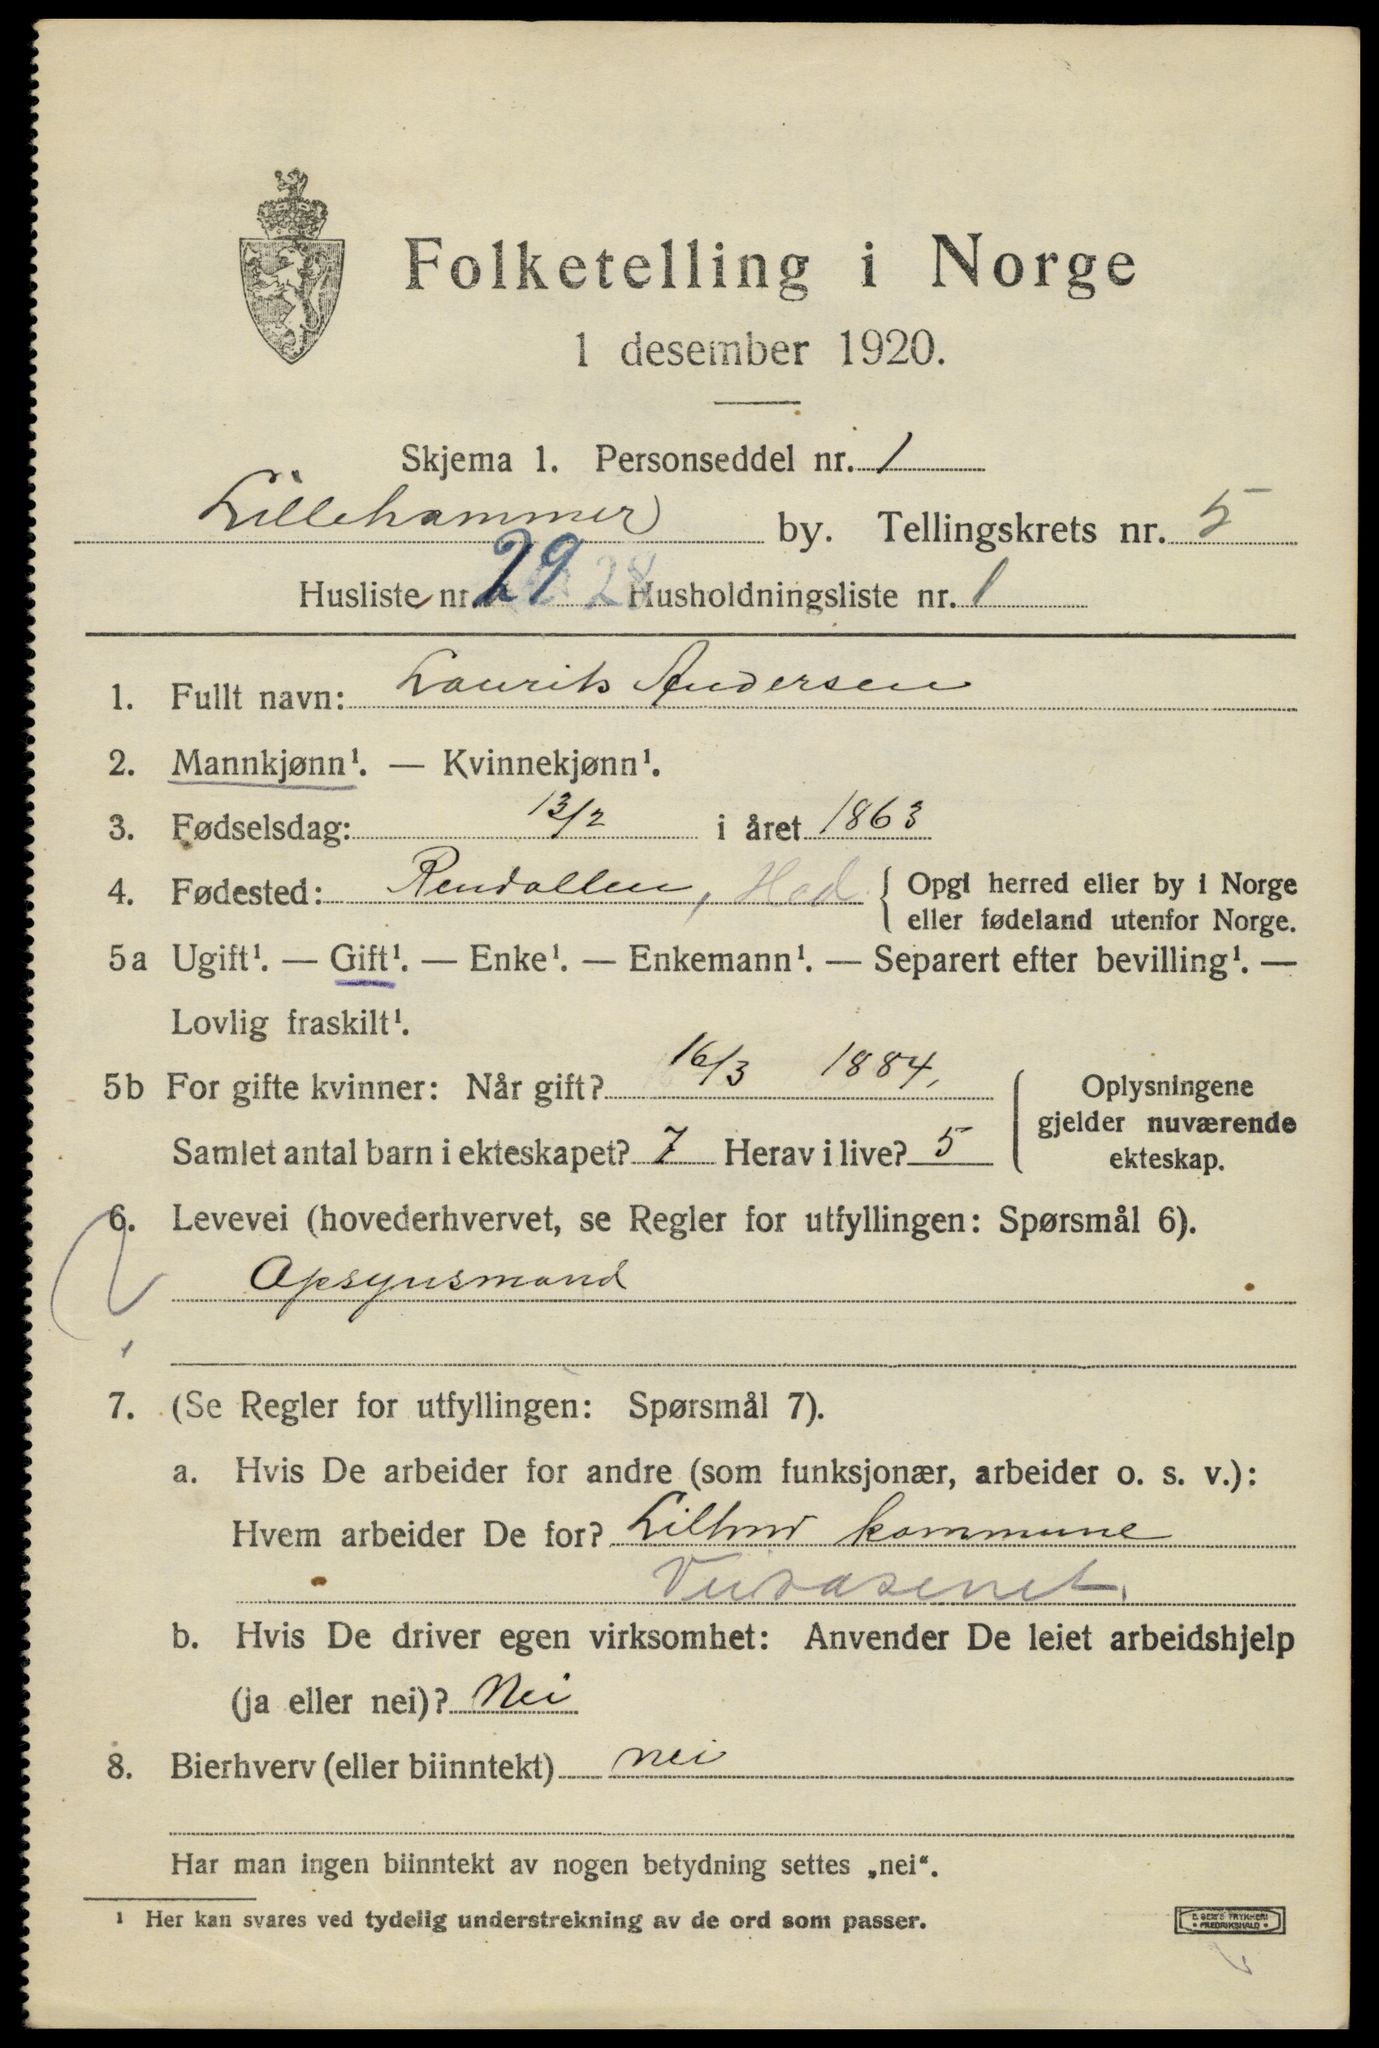 Folketelling i Norge
1 desember 1920.
Skjema 1. Personseddel nr. 1
Lillehammer by. Tellingskrets nr. 5
Husliste nr. 29 28 Husholdningsliste nr. 1
1. Fullt navn: Laurits Andersen
2. Mannkjønn¹. — Kvinnekjønn¹.
3. Fødselsdag: 13/2 i året 1863
4. Fødested: Rendallen, Hed { Opgi herred eller by i Norge
eller fødeland utenfor Norge.
5a Ugift¹. — Gift¹. — Enke¹. — Enkemann¹. — Separert efter bevilling¹. —
Lovlig fraskilt¹.
5b For gifte kvinner: Når gift? 16/3 1884, Oplysningene
gjelder nuværende
Samlet antal barn i ekteskapet? 7 Herav i live? 5 ekteskap.
6. Levevei (hovederhvervet, se Regler for utfyllingen: Spørsmål 6).
Opsynsmand
7. (Se Regler for utfyllingen: Spørsmål 7).
a. Hvis De arbeider for andre (som funksjonær, arbeider o. s. v.):
Hvem arbeider De for? Lilhmr kommune
Veivæsenet.
b. Hvis De driver egen virksomhet: Anvender De leiet arbeidshjelp
(ja eller nei)? Nei
8. Bierhverv (eller biinntekt) nei
Har man ingen biinntekt av nogen betydning settes „nei“.
¹ Her kan svares ved tydelig understrekning av de ord som passer.
E. SEM'S TRYKKERI
• FREDRIKSHALD •